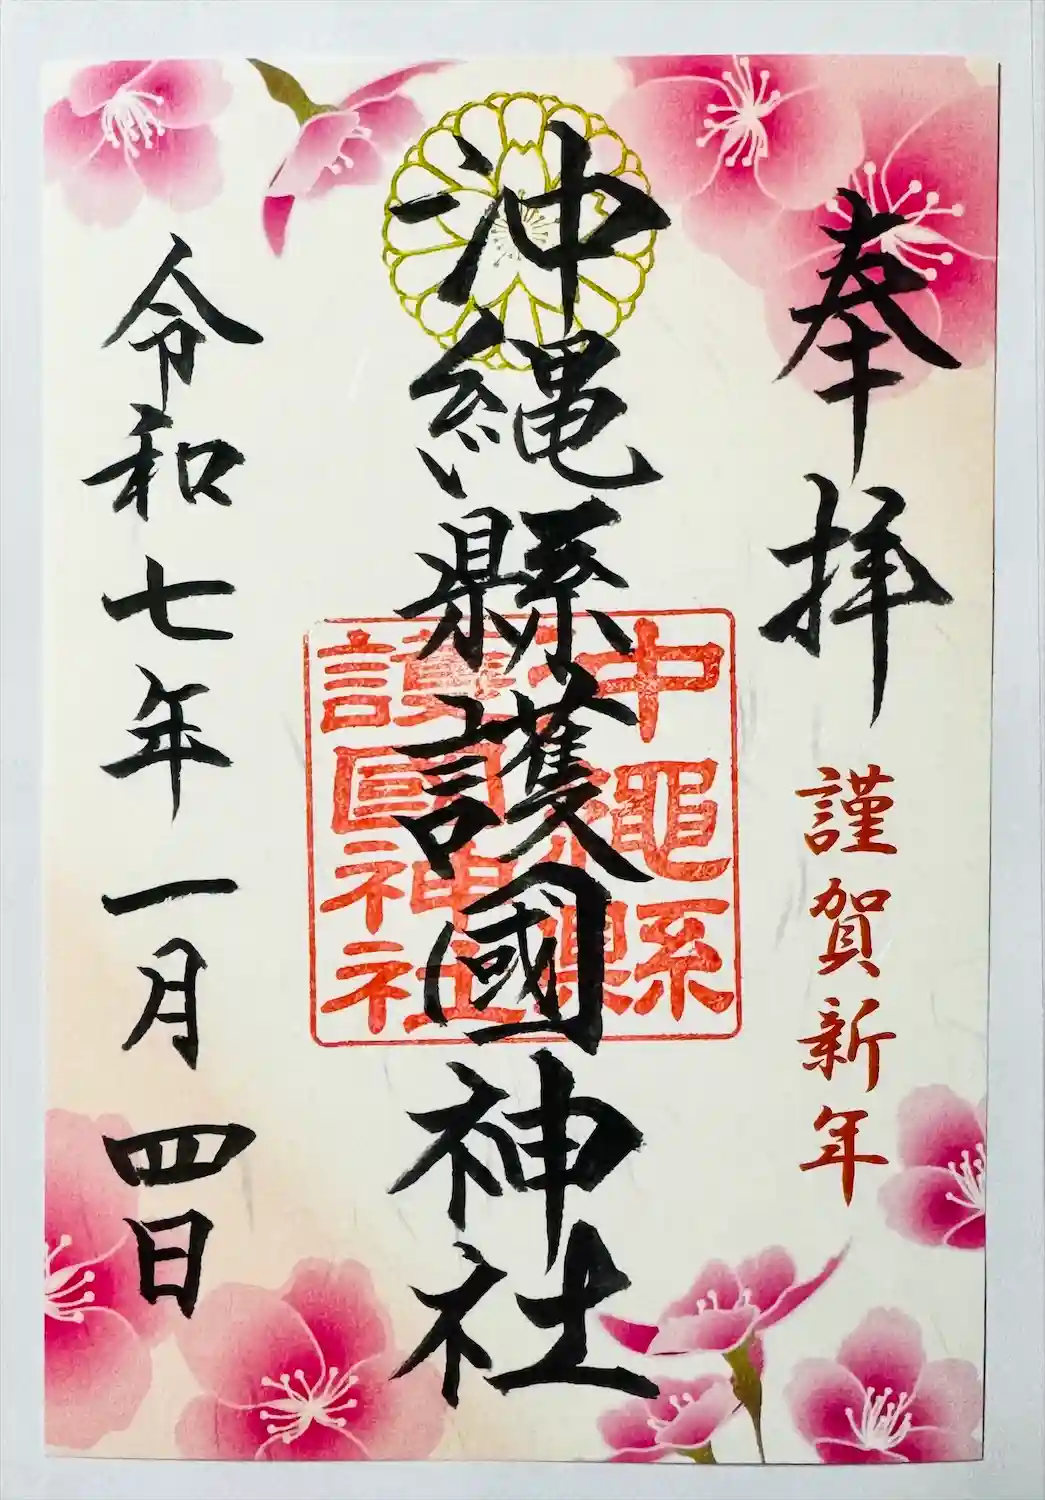 奉拝
謹賀新年
沖縄縣護國神社
沖縄縣
護國神社
令和七年一月四日